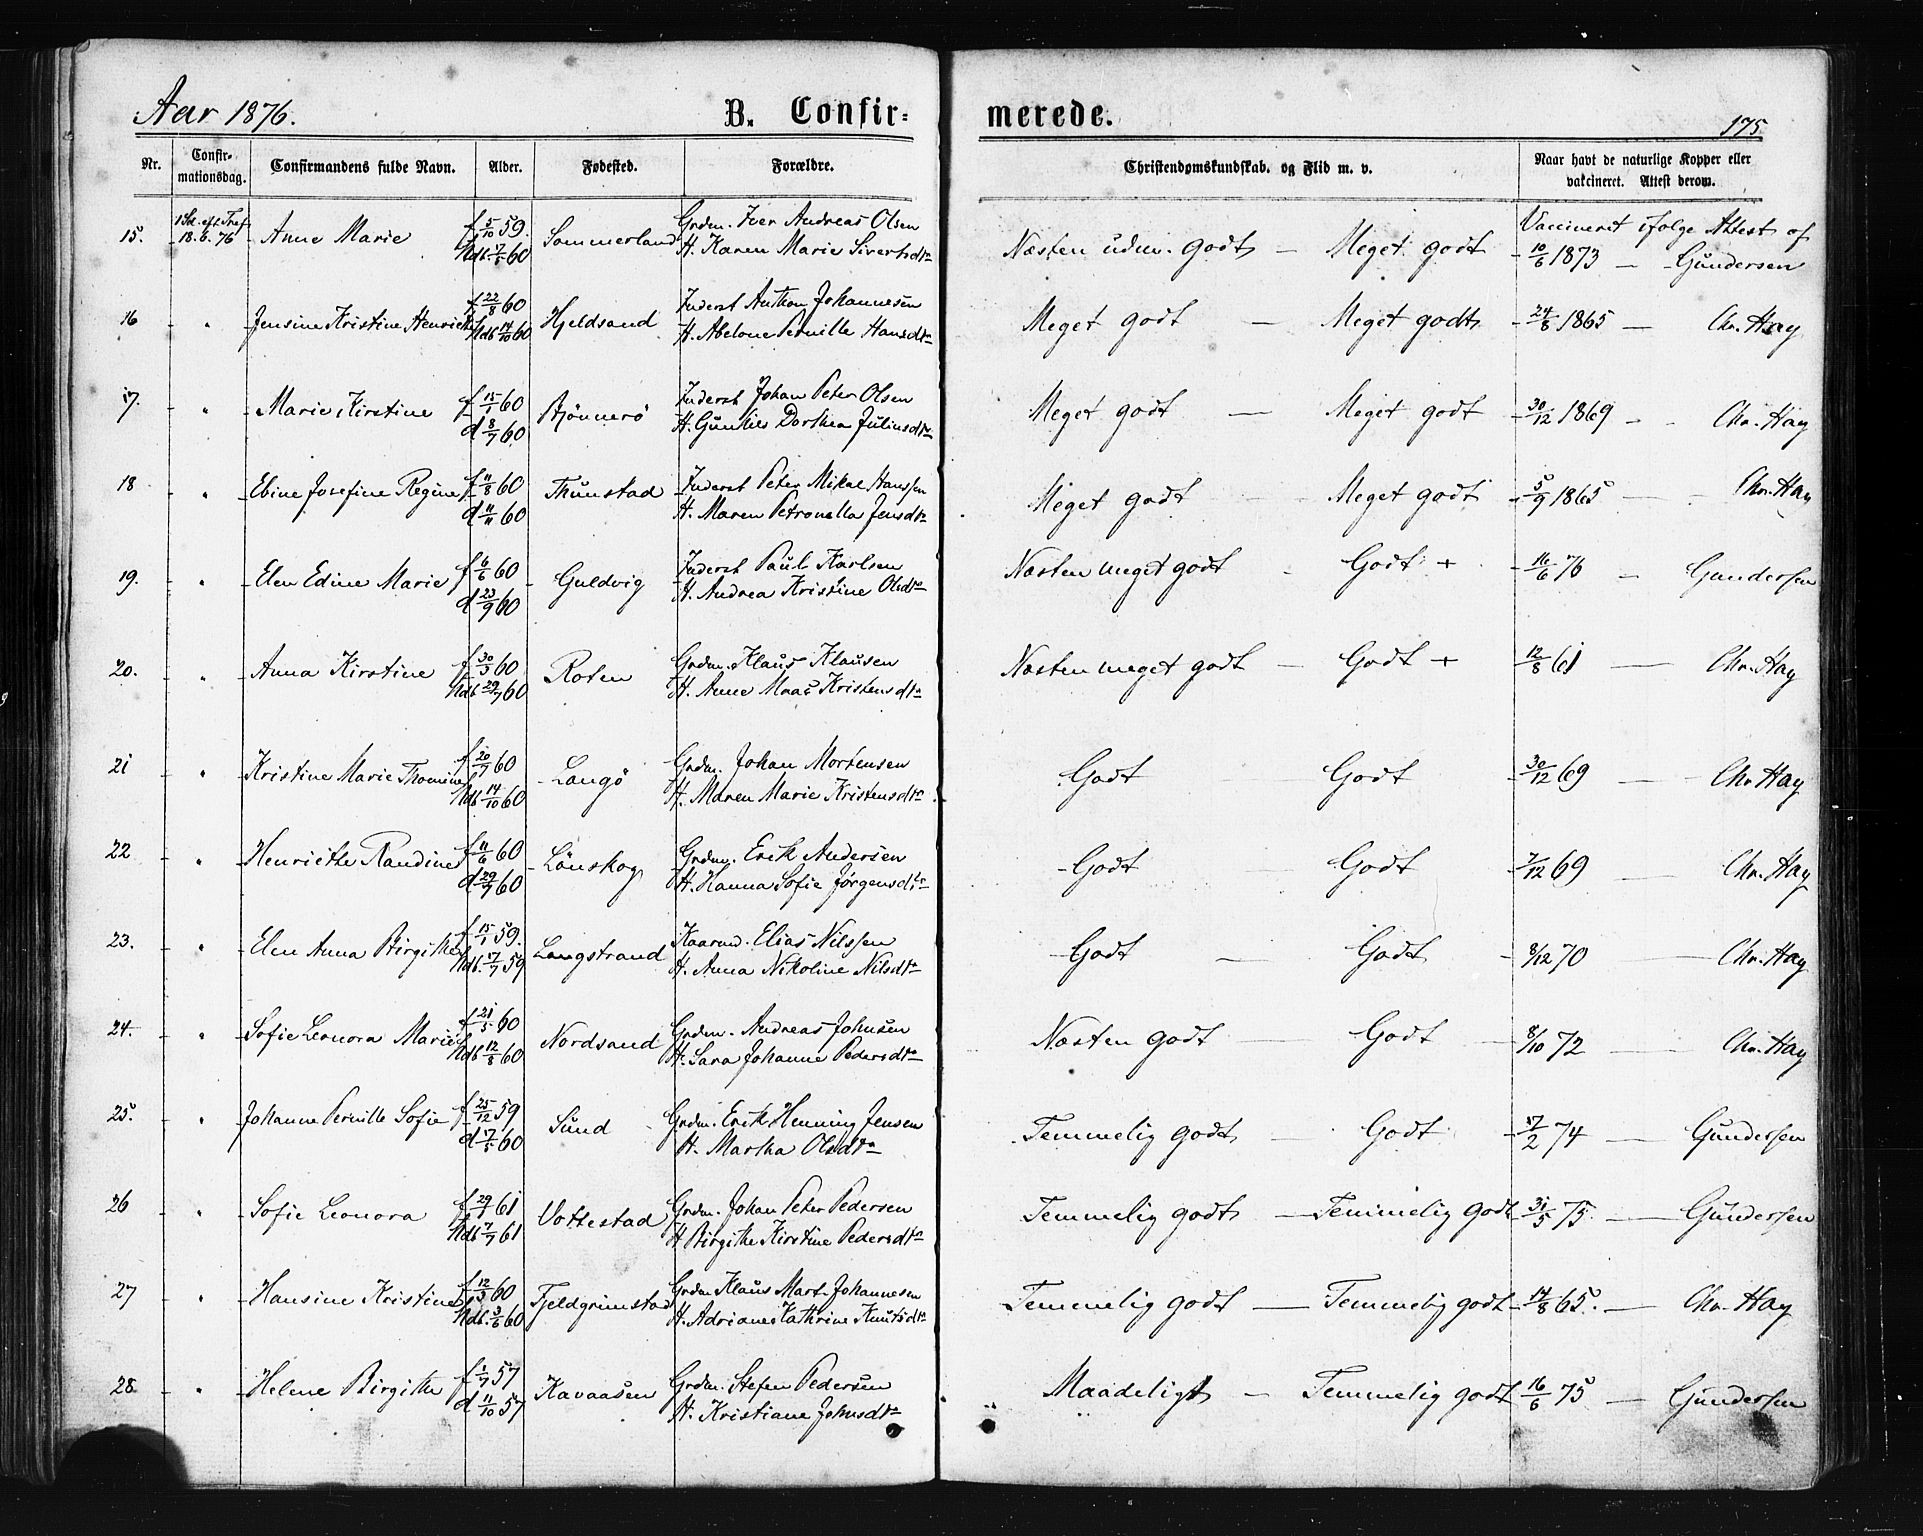 Aar 1876.
B. Confir=
merede.
175
Nr.
Confir-
mationsdag.
Confirmandens fulde Navn.
Alder.
Fødested.
Forældre.
Christendomskundskab. og Flid m. v.
Naar havt de naturlige Kopper eller
vakcineret. Attest derom.
15. 1 Sd. eft. Tref. 18.6.76 Anne Marie f 5/10 59. Sommerland Grdm. Iver Andreas Olsen
H. Karen Marie Sivertsdtr
Næsten udm. godt — Meget godt
Vaccineret ifølge Attest af
10/6 1873 — Gundersen
16 " Jensine Kristine Henrikke f 22/8 60 Hjeldsand Inderst Anthon Johannesen
Ndb 14/10 60 H. Abelone Pernille Hansdtr
Meget godt — Meget godt 24/8 1865 — Chr. Hay
17. " Marie Kirstine f 15/1 60 Bjönnerö Inderst Johan Peter Olsen
d 8/7 60 H. Dorthea Juliusdtr
Meget godt — Meget godt 30/12 1869 - - Chr. Hay
18 " Ebine Josefine Regine f 11/8 60 Thunstad Inderst Peter Mikal Hanssen
d 11/11 60 H. Maren Petronella Jensdtr
Meget godt — Meget godt 5/9 1865 — Chr. Hay
19. " Elen Edine Marie f 6/6 60 Guldvig Inderst Paul Karlsen
d 23/9 60 H. Andrea Kristine Olsdtr
Næsten meget godt - Godt + 16/6 76 — Gundersen
20. " Anna Kirstine f 30/3 60 Roten Grdm. Klaus Klausen
Ndb 29/7 60 H. Anne Maas Kristensdtr
Næsten meget godt — Godt + 12/8 61 — Chr. Hay
21 " Kristine Marie Thomine f 20/7 60 Langö Grdm. Johan Mortensen
Ndb 14/10 60 H. Maren Marie Kristensdtr
Godt Godt 30/12 69 — Chr. Hay
22 " Henriette Randine f 11/6 60 Lönskog Grdm. Erik Andersen
d 29/9 60 H. Hanna Sofie Jørgensdtr
Godt Godt 7/12 69 — Chr. Hay
23. " Elen Anna Birgithe f 15/1 59. Langstrand Kaarmd. Elias Nilssen
Ndb. 17/7 59 H. Anna Nikoline Nilsdtr
Godt — Godt 8/12 70 — Chr. Hay
24. " Sofie Leonora Marie f 21/5 60 Nordsand Grdm. Andreas Johnsen
Ndb 12/8 60 H. Sara Johanne Pedersdtr
Næsten godt — Godt 8/10 72 — Chr. Hay
25. " Johanne Pernille Sofie f 25/12 59 Sund Grdm. Erik Henning Jensen
H. Martha Olsdtr
Temmelig godt — Godt 17/2 74 — Gundersen
26 " Sofie Leonora f 29/1 61 Vottestad Grdm. Johan Peter Pedersen
Ndb 7/7 61 H Birgithe Kirstine Pedersdtr
Temmelig godt — Temmelig godt 31/5 75. — Gundersen
27 " Hansine Kristine f 12/3 60 Fjeldgrimstad Grdm Klaus Mart. Johannesen
Ndb. 3/6 60 H. Adriane Kathrine Knutsdtr
Temmelig godt — Temmelig godt 14/8 65. — Chr. Hay
28 " Helene Birgithe f 1/7 57 Kavaasen Grdm. Stefen Pedersen
d 11/10 57 H. Kristiane Johnsdtr
Maadeligt — Temmelig godt 16/6 75 — Gundersen